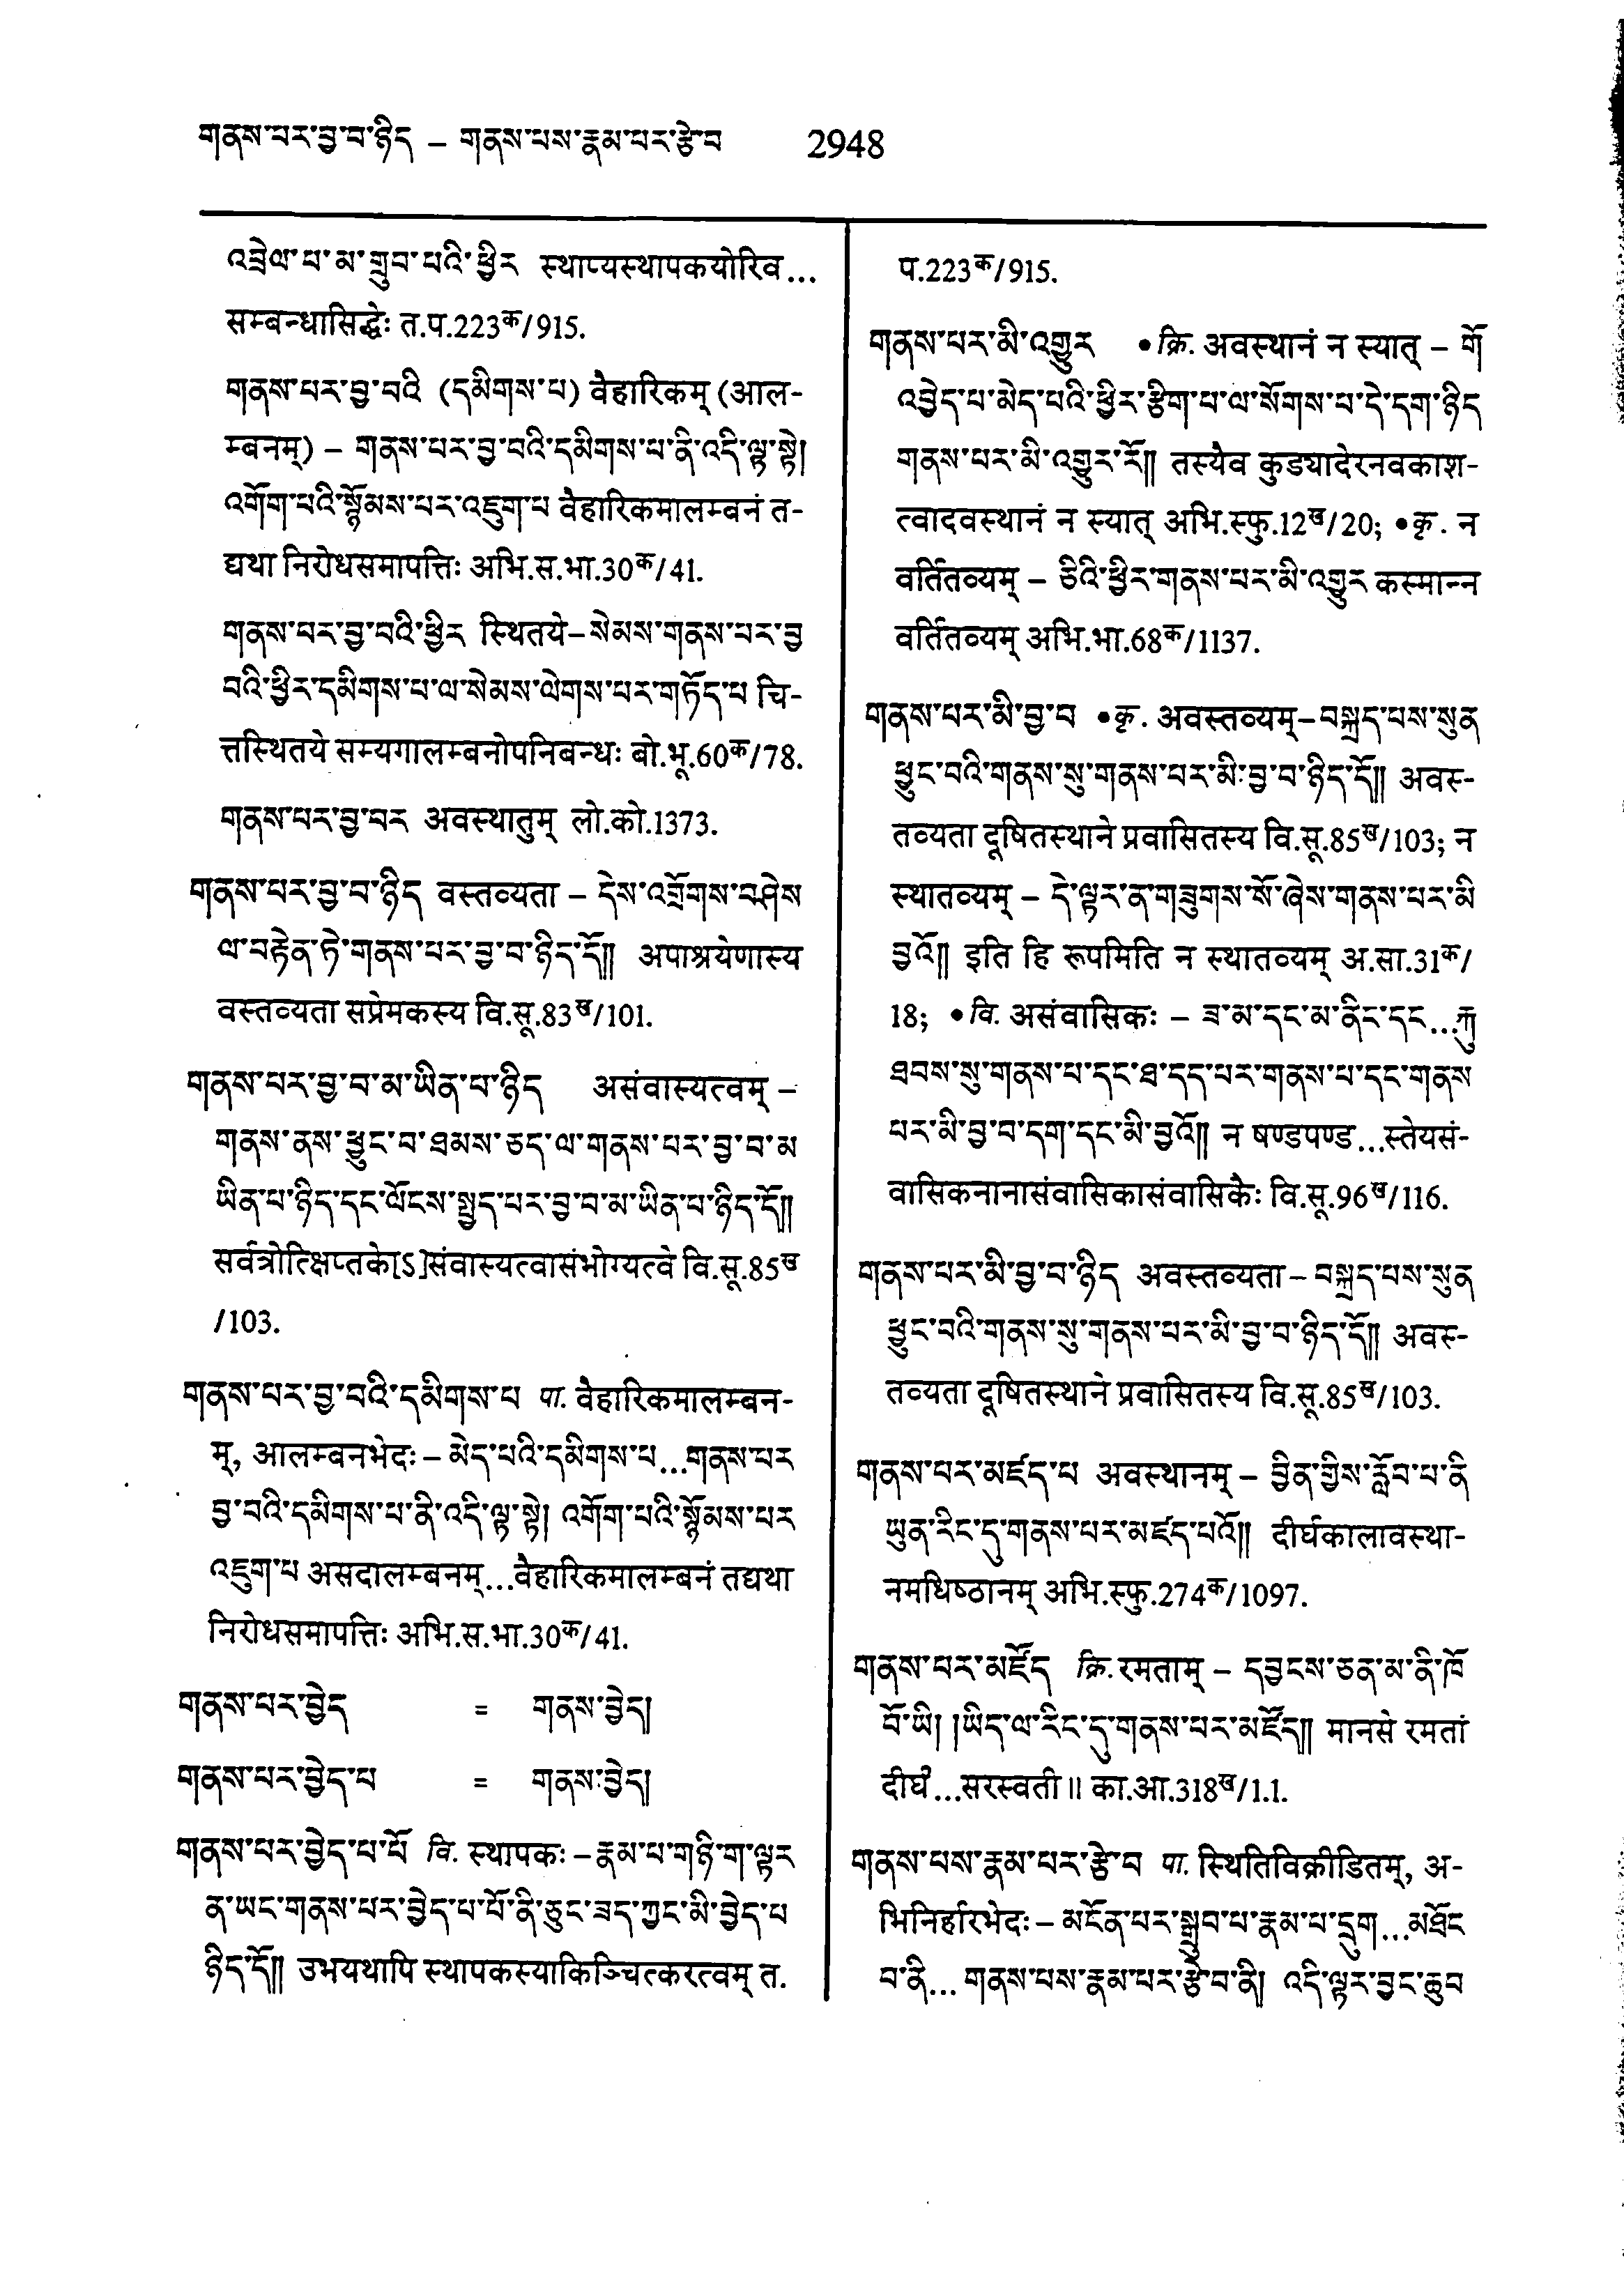 གནས་པར་བྱ་བ་ཉིད – གནས་པས་རྣམ་པར་རྩེ་བ 2948
འབྲེལ་པ་མ་གྲུབ་པའི་ཕྱིར स्थाप्यस्थापकयोरिव...
सम्बन्धासिद्धेः त.प.223क/915.
གནས་པར་བྱ་བའི (དམིགས་པ) वैहारिकम् (आल-
म्बनम्) – གནས་པར་བྱ་བའི་དམིགས་པ་ནི་འདི་ལྟ་སྟེ།
འགོག་པའི་སྙོམས་པར་འཇུག་པ वैहारिकमालम्बनं त-
द्यथा निरोधसमापत्तिः अभि.स.भा.30क/41.
གནས་པར་བྱ་བའི་ཕྱིར स्थितये – སེམས་གནས་པར་བྱ
བའི་ཕྱིར་དམིགས་པ་ལ་སེམས་ལེགས་པར་གཏོད་པ चि-
त्तस्थितये सम्यगालम्बनोपनिबन्धः बो.भू.60क/78.
གནས་པར་བྱ་བར अवस्थातुम् लो.को.1373.
གནས་པར་བྱ་བ་ཉིད वस्तव्यता – དེས་འགྲོགས་བཤེས
ལ་བརྟེན་ཏེ་གནས་པར་བྱ་བ་ཉིད་དོ།། अपाश्रयेणास्य
वस्तव्यता सप्रेमकस्य वि.सू.83ख/101.
གནས་པར་བྱ་བ་མ་ཡིན་པ་ཉིད असंवास्यत्वम् –
གནས་ནས་ཕྱུང་བ་ཐམས་ཅད་ལ་གནས་པར་བྱ་བ་མ
ཡིན་པ་ཉིད་དང་ལོངས་སྤྱད་པར་བྱ་བ་མ་ཡིན་པ་ཉིད་དོ།།
सर्वत्रोत्क्षिप्तके[ऽ]संवास्यत्वासंभोग्यत्वे वि.सू.85ख
/103.
གནས་པར་བྱ་བའི་དམིགས་པ पा. वैहारिकमालम्बन-
म्, आलम्बनभेदः – མེད་པའི་དམིགས་པ...གནས་པར
བྱ་བའི་དམིགས་པ་ནི་འདི་ལྟ་སྟེ། འགོག་པའི་སྙོམས་པར
འཇུག་པ असदालम्बनम्...वैहारिकमालम्बनं तद्यथा
निरोधसमापत्तिः अभि.स.भा.30क/41.
གནས་པར་བྱེད = གནས་བྱེད།
གནས་པར་བྱེད་པ = གནས་བྱེད།
གནས་པར་བྱེད་པ་པོ वि. स्थापकः – རྣམ་པ་གཉི་ག་ལྟར
ན་ཡང་གནས་པར་བྱེད་པ་པོ་ནི་ཅུང་ཟད་ཀྱང་མི་བྱེད་པ
ཉིད་དོ།། उभयथापि स्थापकस्याकिञ्चित्करत्वम् त.
प.223क/915.
གནས་པར་མི་འགྱུར • क्रि. अवस्थानं न स्यात् – གོ
འབྱེད་པ་མེད་པའི་ཕྱིར་རྩིག་པ་ལ་སོགས་པ་དེ་དག་ཉིད
གནས་པར་མི་འགྱུར་རོ།། तस्यैव कुड्यादेरनवकाश-
त्वादवस्थानं न स्यात् अभि.स्फु.12ख/20; • कृ. न
वर्तितव्यम् – ཅིའི་ཕྱིར་གནས་པར་མི་འགྱུར कस्मान्न
वर्तितव्यम् अभि.भा.68क/1137.
གནས་པར་མི་བྱ་བ • कृ. अवस्तव्यम् – བསྐྲད་པས་སུན
ཕྱུང་བའི་གནས་སུ་གནས་པར་མི་བྱ་བ་ཉིད་དོ།། अवस-
तव्यता दूषितस्थाने प्रवासितस्य वि.सू.85ख/103; न
स्थातव्यम् – དེ་ལྟར་ན་གཟུགས་སོ་ཞེས་གནས་པར་མི
བྱའོ།། इति हि रूपमिति न स्थातव्यम् अ.सा.31क/
18; • वि. असंवासिकः – ཟ་མ་དང་མ་ནིང་དང...རྐུ
ཐབས་སུ་གནས་པ་དང་ཐ་དད་པར་གནས་པ་དང་གནས
པར་མི་བྱ་བ་དག་དང་མི་བྱའོ།། न षण्डपण्ड...स्तेयसं-
वासिकनानासंवासिकासंवासिकैः वि.सू.96ख/116.
གནས་པར་མི་བྱ་བ་ཉིད अवस्तव्यता – བསྐྲད་པས་སུན
ཕྱུང་བའི་གནས་སུ་གནས་པར་མི་བྱ་བ་ཉིད་དོ།། अवस-
तव्यता दूषितस्थाने प्रवासितस्य वि.सू.85ख/103.
གནས་པར་མཛད་པ अवस्थानम् – བྱིན་གྱིས་རློབ་པ་ནི
ཡུན་རིང་དུ་གནས་པར་མཛད་པའོ།། दीर्घकालावस्था-
नमधिष्ठानम् अभि.स्फु.274क/1097.
གནས་པར་མཛོད क्रि. रमताम् – དབྱངས་ཅན་མ་ནི་ཁོ
བོ་ཡི། །ཡིད་ལ་རིང་དུ་གནས་པར་མཛོད།། मानसे रमतां
दीर्घं...सरस्वती ॥ का.आ.318ख/1.1.
གནས་པས་རྣམ་པར་རྩེ་བ पा. स्थितिविक्रीडितम्, अ-
भिनिर्हारभेदः – མངོན་པར་སྒྲུབ་པ་རྣམ་པ་དྲུག...མཐོང
བ་ནི... གནས་པས་རྣམ་པར་རྩེ་བ་ནི། འདི་ལྟར་བྱང་ཆུབ